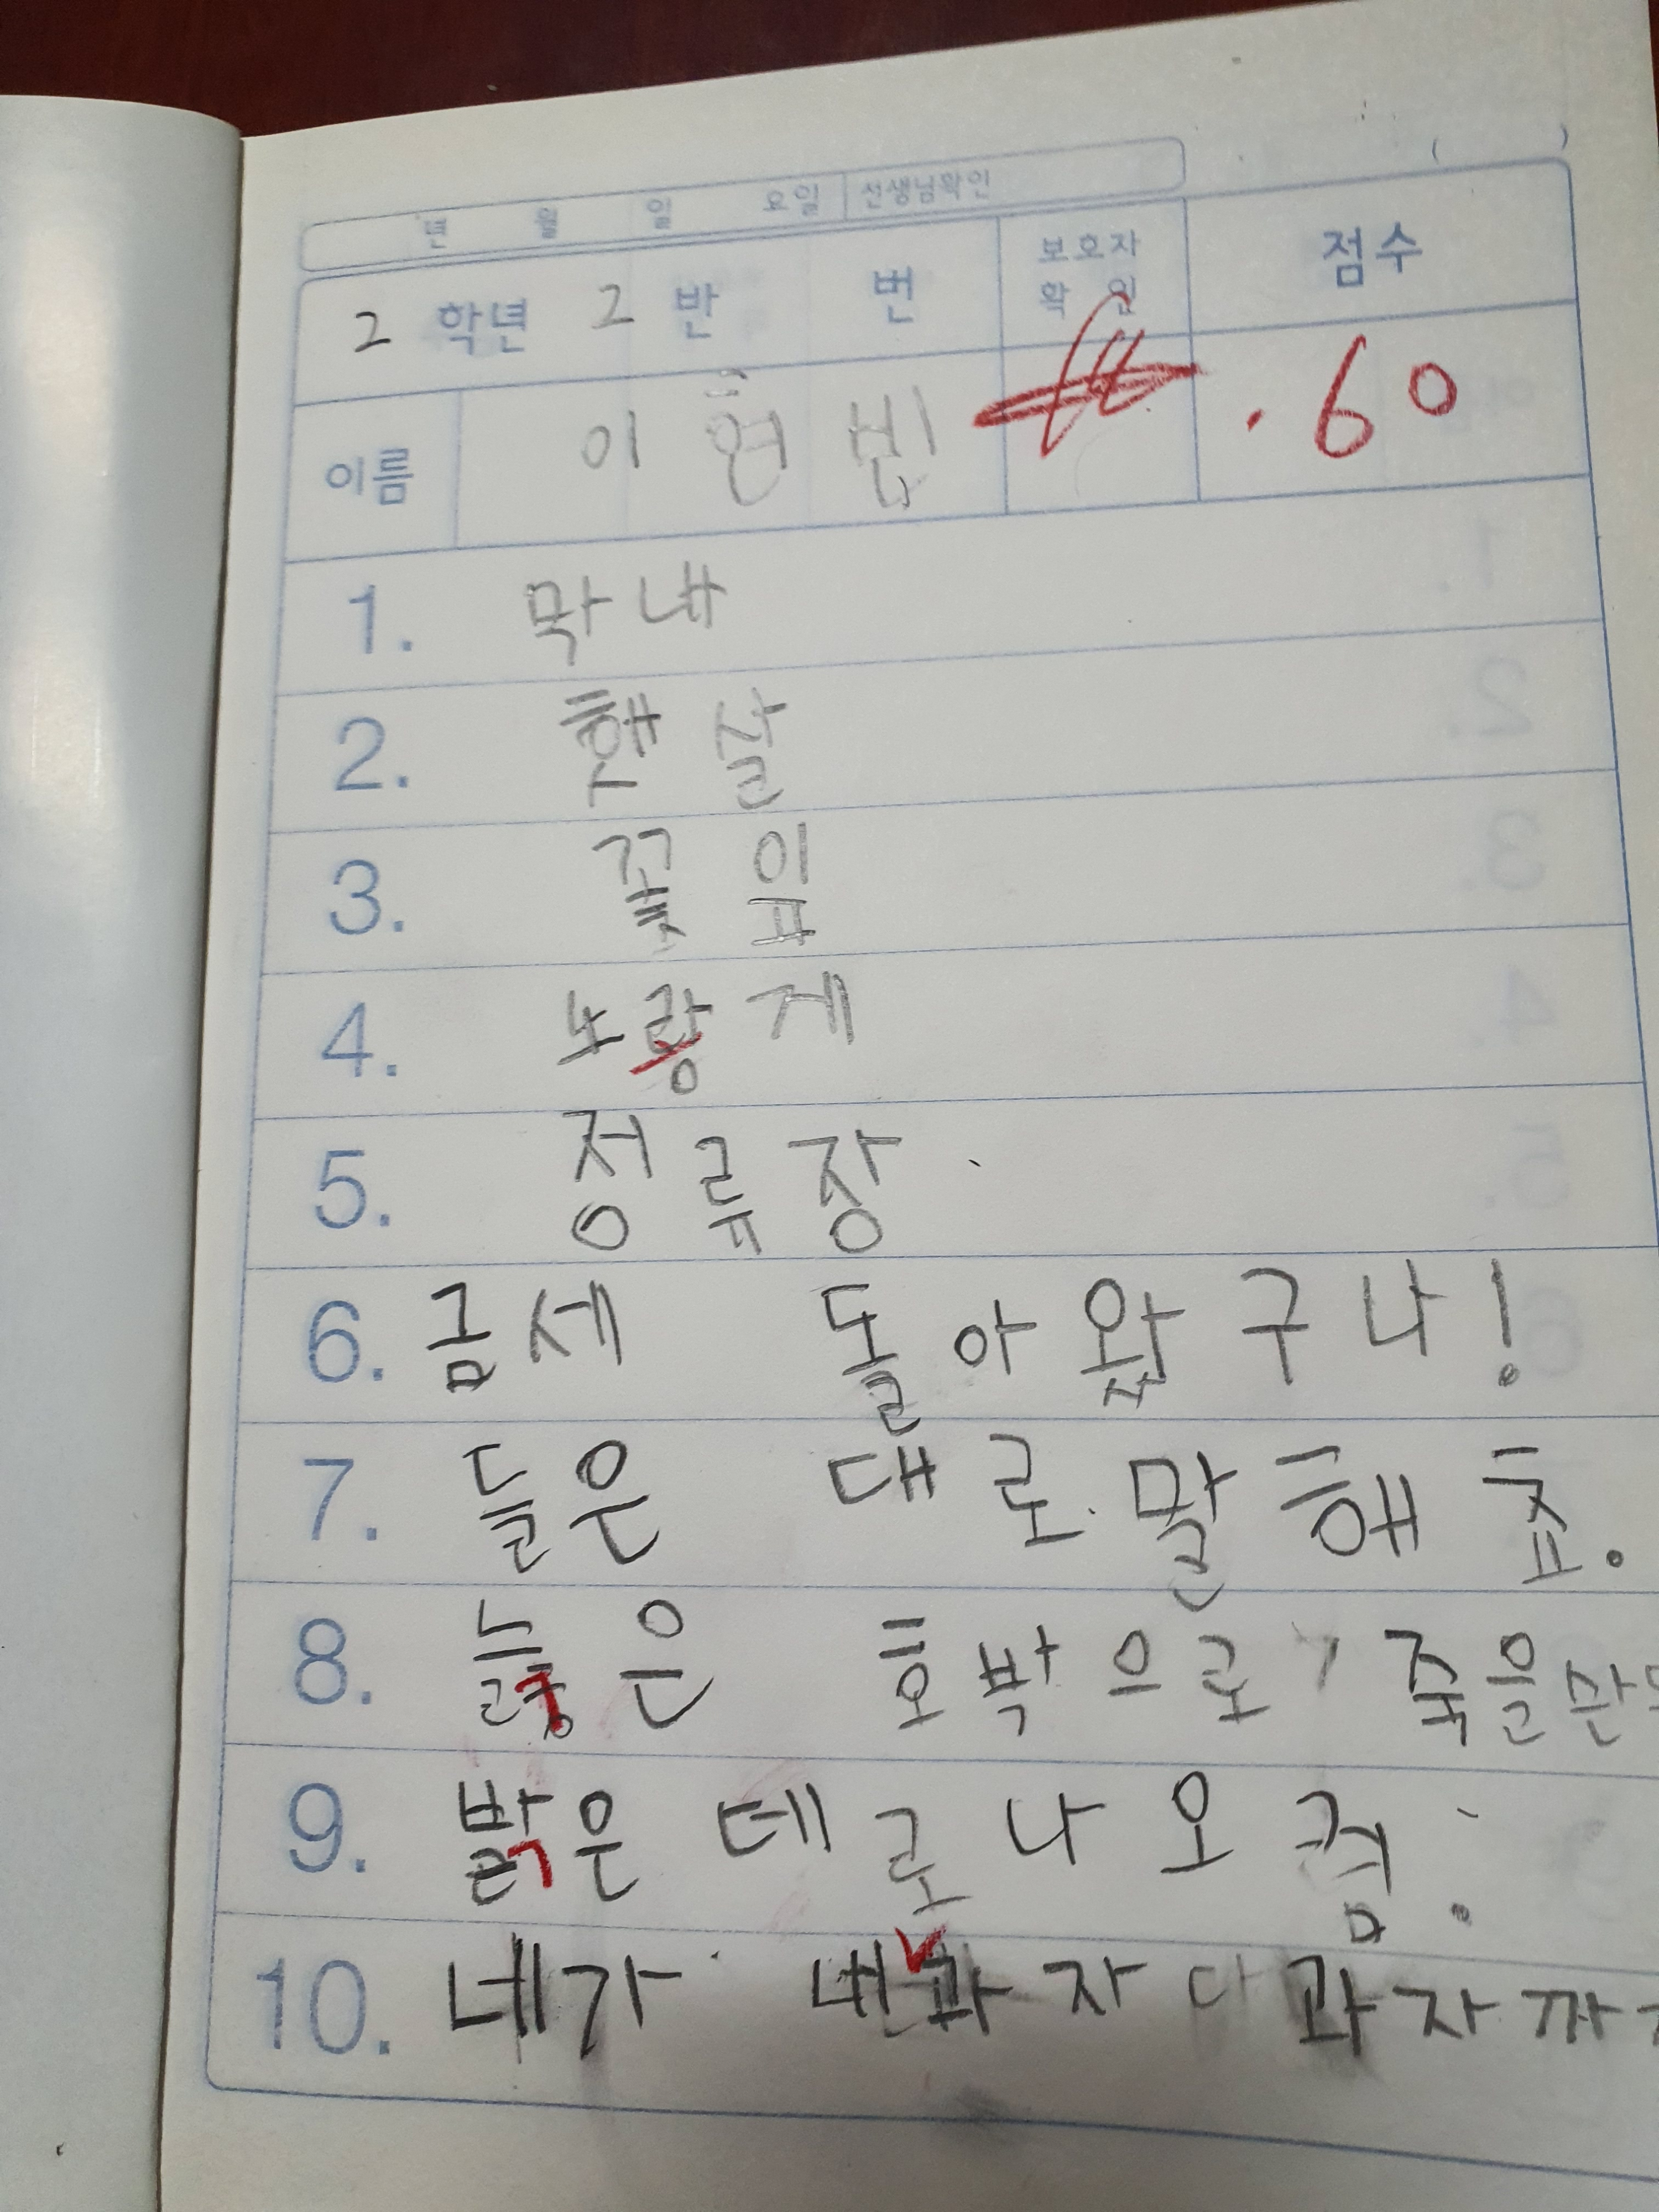 년 월 일 요일 선생님확인
2 학년 2 반 번 보호자 확인 점수
이름 이현빈 60
1. 막내
2. 햇살
3. 꽃잎
4. 노랑게
5. 정류장
6. 금세 돌아왔구나!
7. 들은 대로 말해
8. 은 호박으로 죽을
9. 밝은 데로 나오
10. 네가 과자 과자까